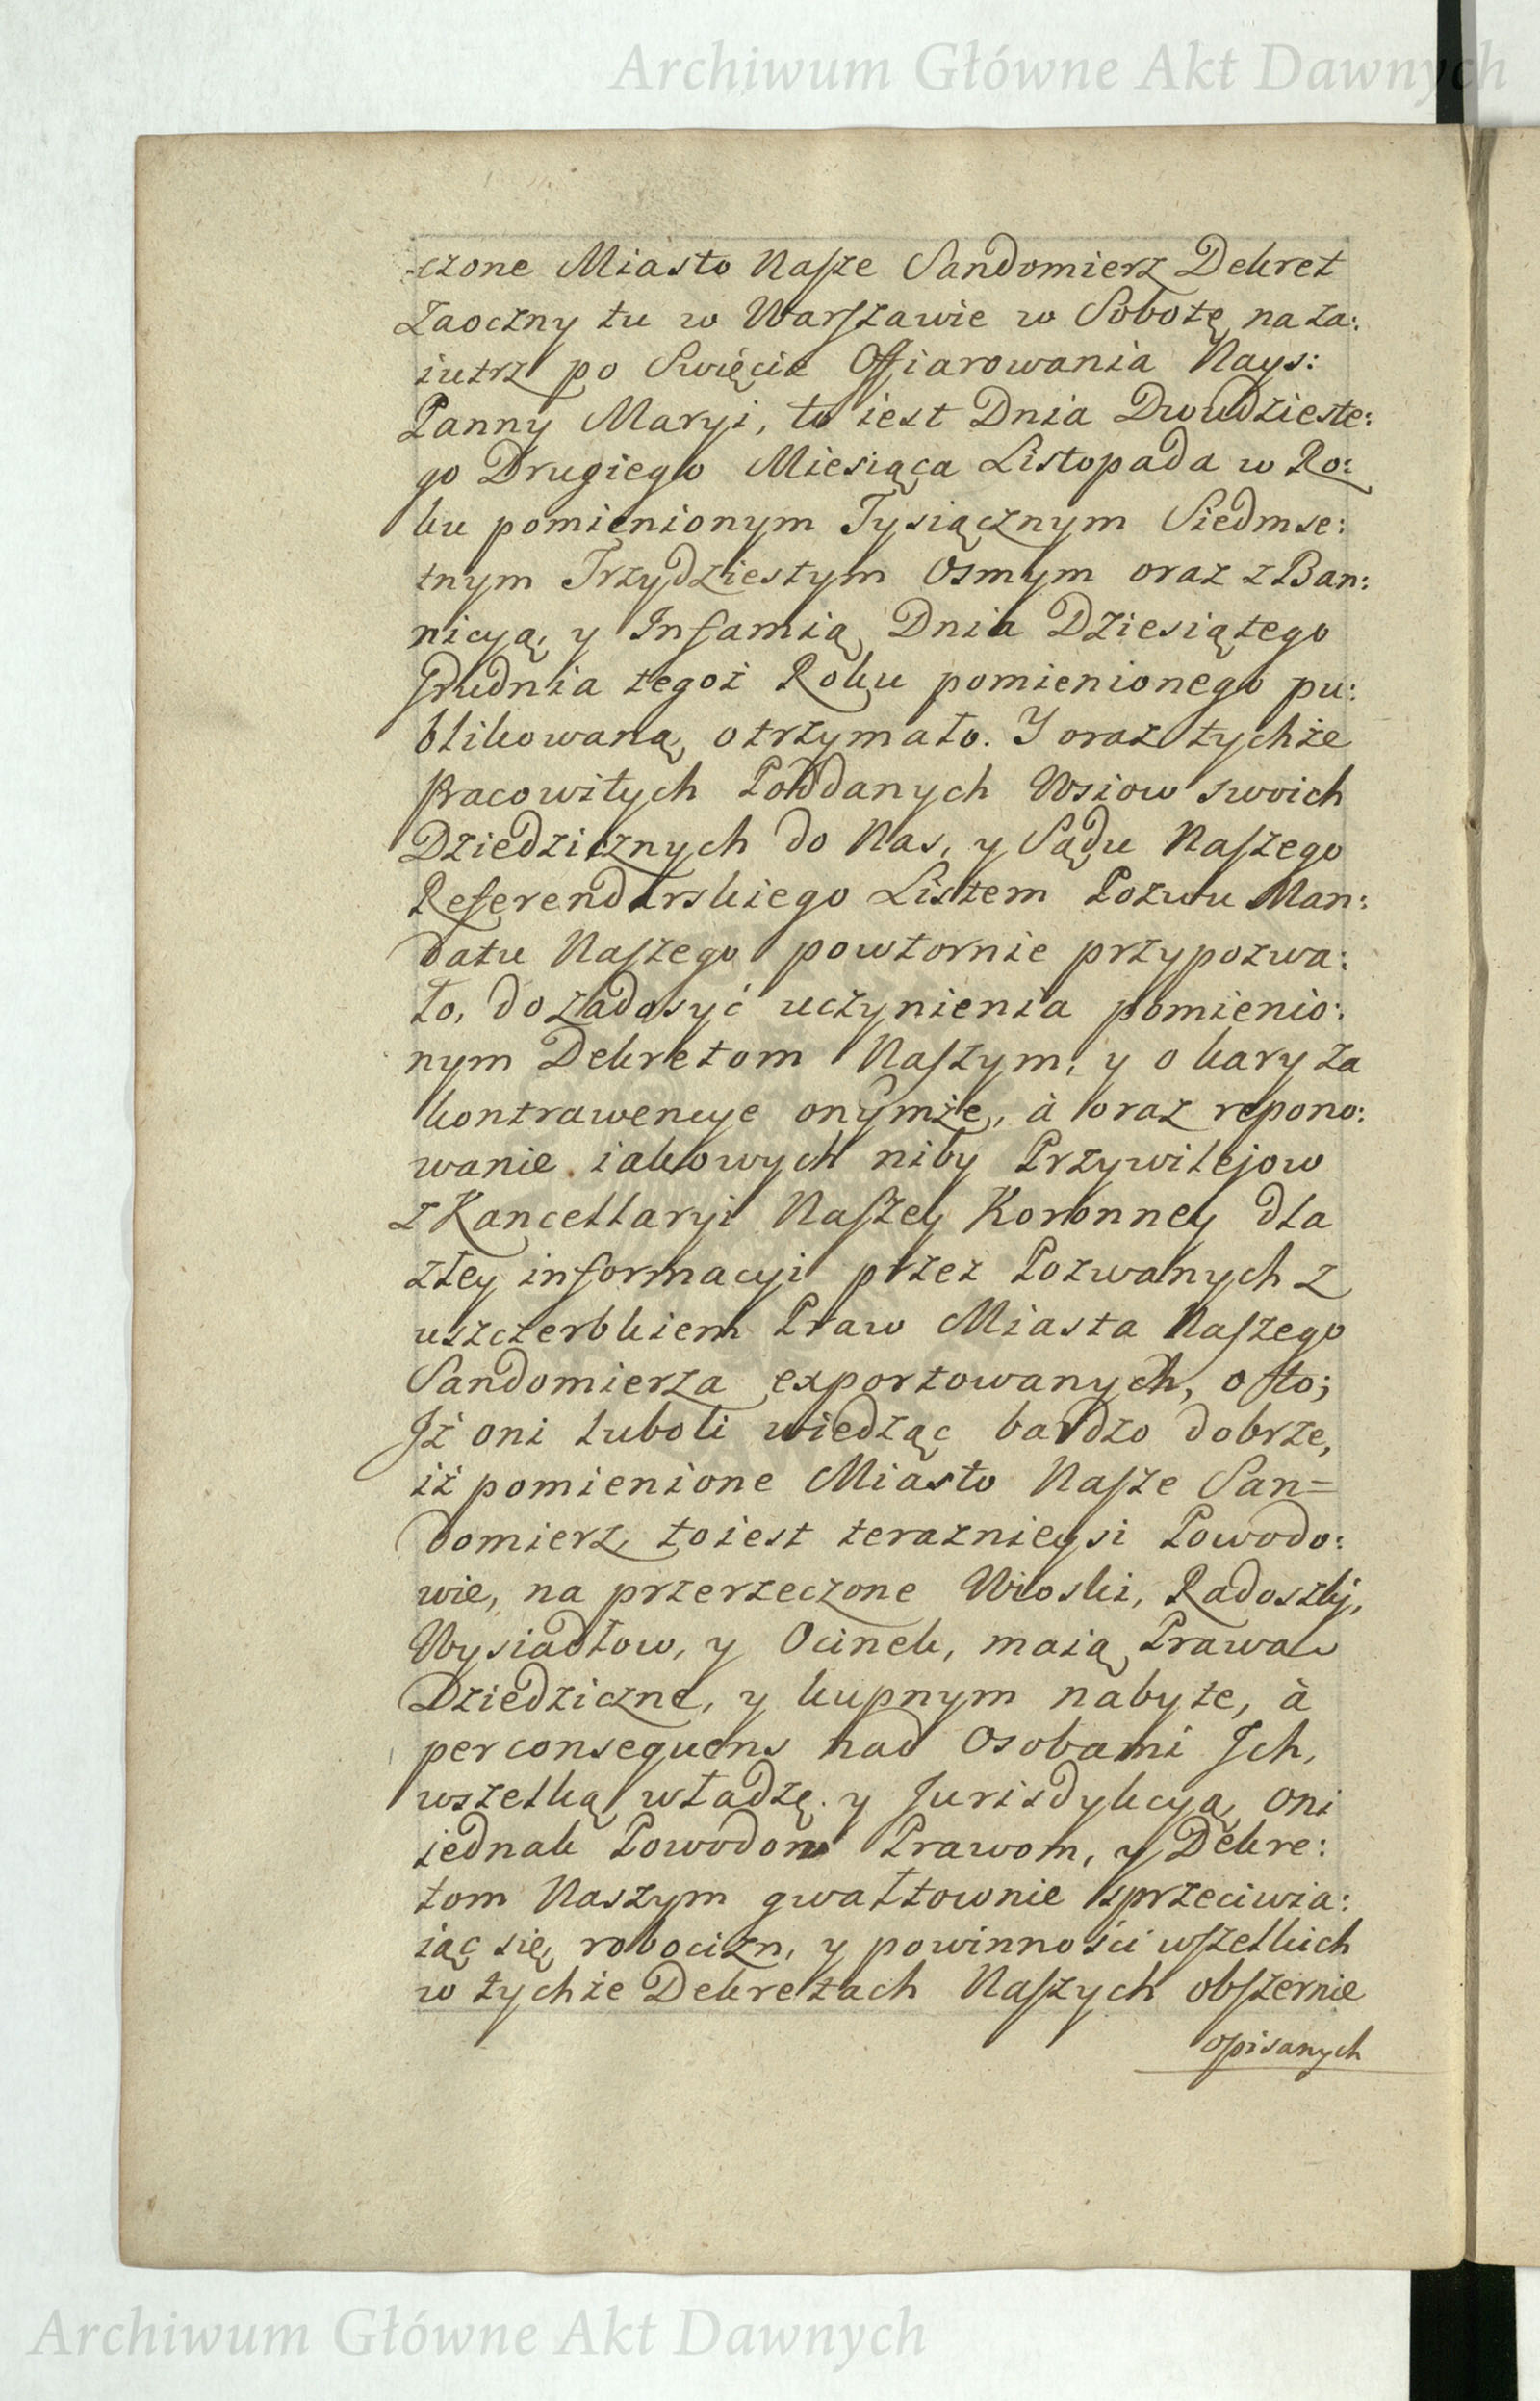 Archiwum Główne Akt Dawnych
-czone Miasto Nasze Sandomierz Dekret
Zaoczny tu w Warszawie w Sobotę na za:
iutrz po Swięcie Offiarowania Nays:
Panny Maryi, to iest Dnia Dwudzieste:
go Drugiego Miesiąca Listopada w Ro:
ku pomienionym Tysiącznym Siedmse:
tnym Trzydziestym Osmym oraz z Ban:
nicyą, y Infamią Dnia Dziesiątego
Grudnia tegoż Roku pomienionego pu:
blikowaną, otrzymało. Y oraz tychże
Pracowitych Poddanych Wsiow swoich
Dziedzicznych do Nas, y Sądu Naszego
Referendarskiego Listem Pozwu Man:
datu Naszego powtornie przypozwa:
ło, do zadosyć uczynienia pomienio:
nym Dekretom Naszym, y o kary za
kontrawencye onymże, à oraz repono:
wanie iakowych niby Przywilejow
z Kancellaryi Naszey Koronney dla
złey informacyi przez Pozwanych z
uszczerbkiem Praw Miasta Naszego
Sandomierza exportowanych, o to;
Iż oni luboli wiedząc bardzo dobrze,
iż pomienione Miasto Nasze San=
domierz, to iest teraznieysi Powodo:
wie, na przerzeczone Wioski, Radoszki,
Wysiadłow, y Ocinek, maią Prawa
Dziedziczne, y kupnym nabyte, à
per consequens nad Osobami Ich,
wszelką władzę y Jurisdykcyą, oni
iednak Powodom Prawom, y Dekre:
tom Naszym gwałtownie sprzeciwia:
iąc się, robocizn, y powinności wszelkich
w tychże Dekretach Naszych obszernie
opisanych
Archiwum Główne Akt Dawnych